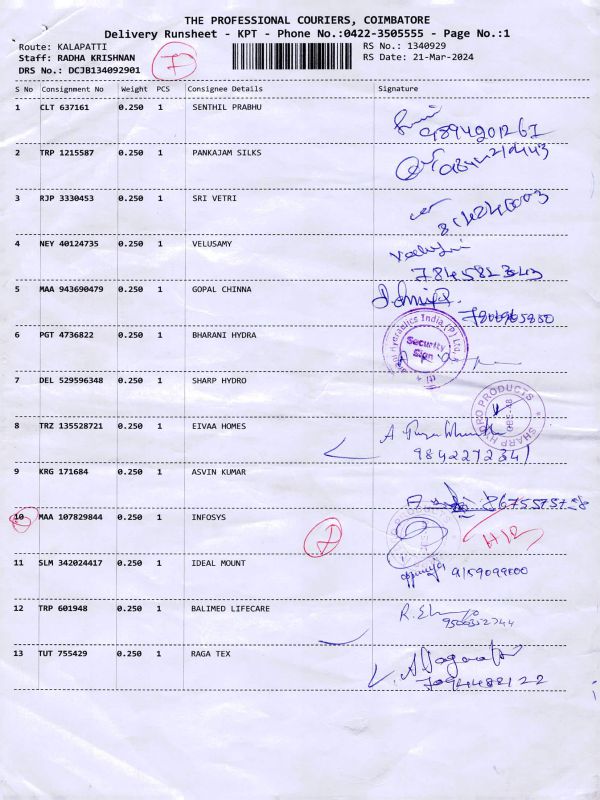 THE PROFESSIONAL COURIERS, COIMBATORE
Delivery Runsheet - KPT - Phone No.:0422-3505555 - Page No.:1
Route: KALAPATTI
RS No.: 1340929
Staff: RADHA KRISHNAN
RS Date: 21-Mar-2024
DRS No.: DCJB134092901
S No Consignment No Weight PCS Consignee Details Signature
1 CLT 637161 0.250 1 SENTHIL PRABHU
9894201267
2 TRP 1215587 0.250 1 PANKAJAM SILKS
3 RJP 3330453 0.250 1 SRI VETRI
4 NEY 40124735 0.250 1 VELUSAMY
7845823243
5 MAA 943690479 0.250 1 GOPAL CHINNA
6 PGT 4736822 0.250 1 BHARANI HYDRA
Hydraulics India (P) Ltd.
Security
Sign
7 DEL 529596348 0.250 1 SHARP HYDRO
SHARP HYDRO PRODUCTS
8 TRZ 135528721 0.250 1 EIVAA HOMES
9842272341
9 KRG 171684 0.250 1 ASVIN KUMAR
8675575758
10 MAA 107829844 0.250 1 INFOSYS
11 SLM 342024417 0.250 1 IDEAL MOUNT
9159099800
12 TRP 601948 0.250 1 BALIMED LIFECARE
9500352744
13 TUT 755429 0.250 1 RAGA TEX
7094488122